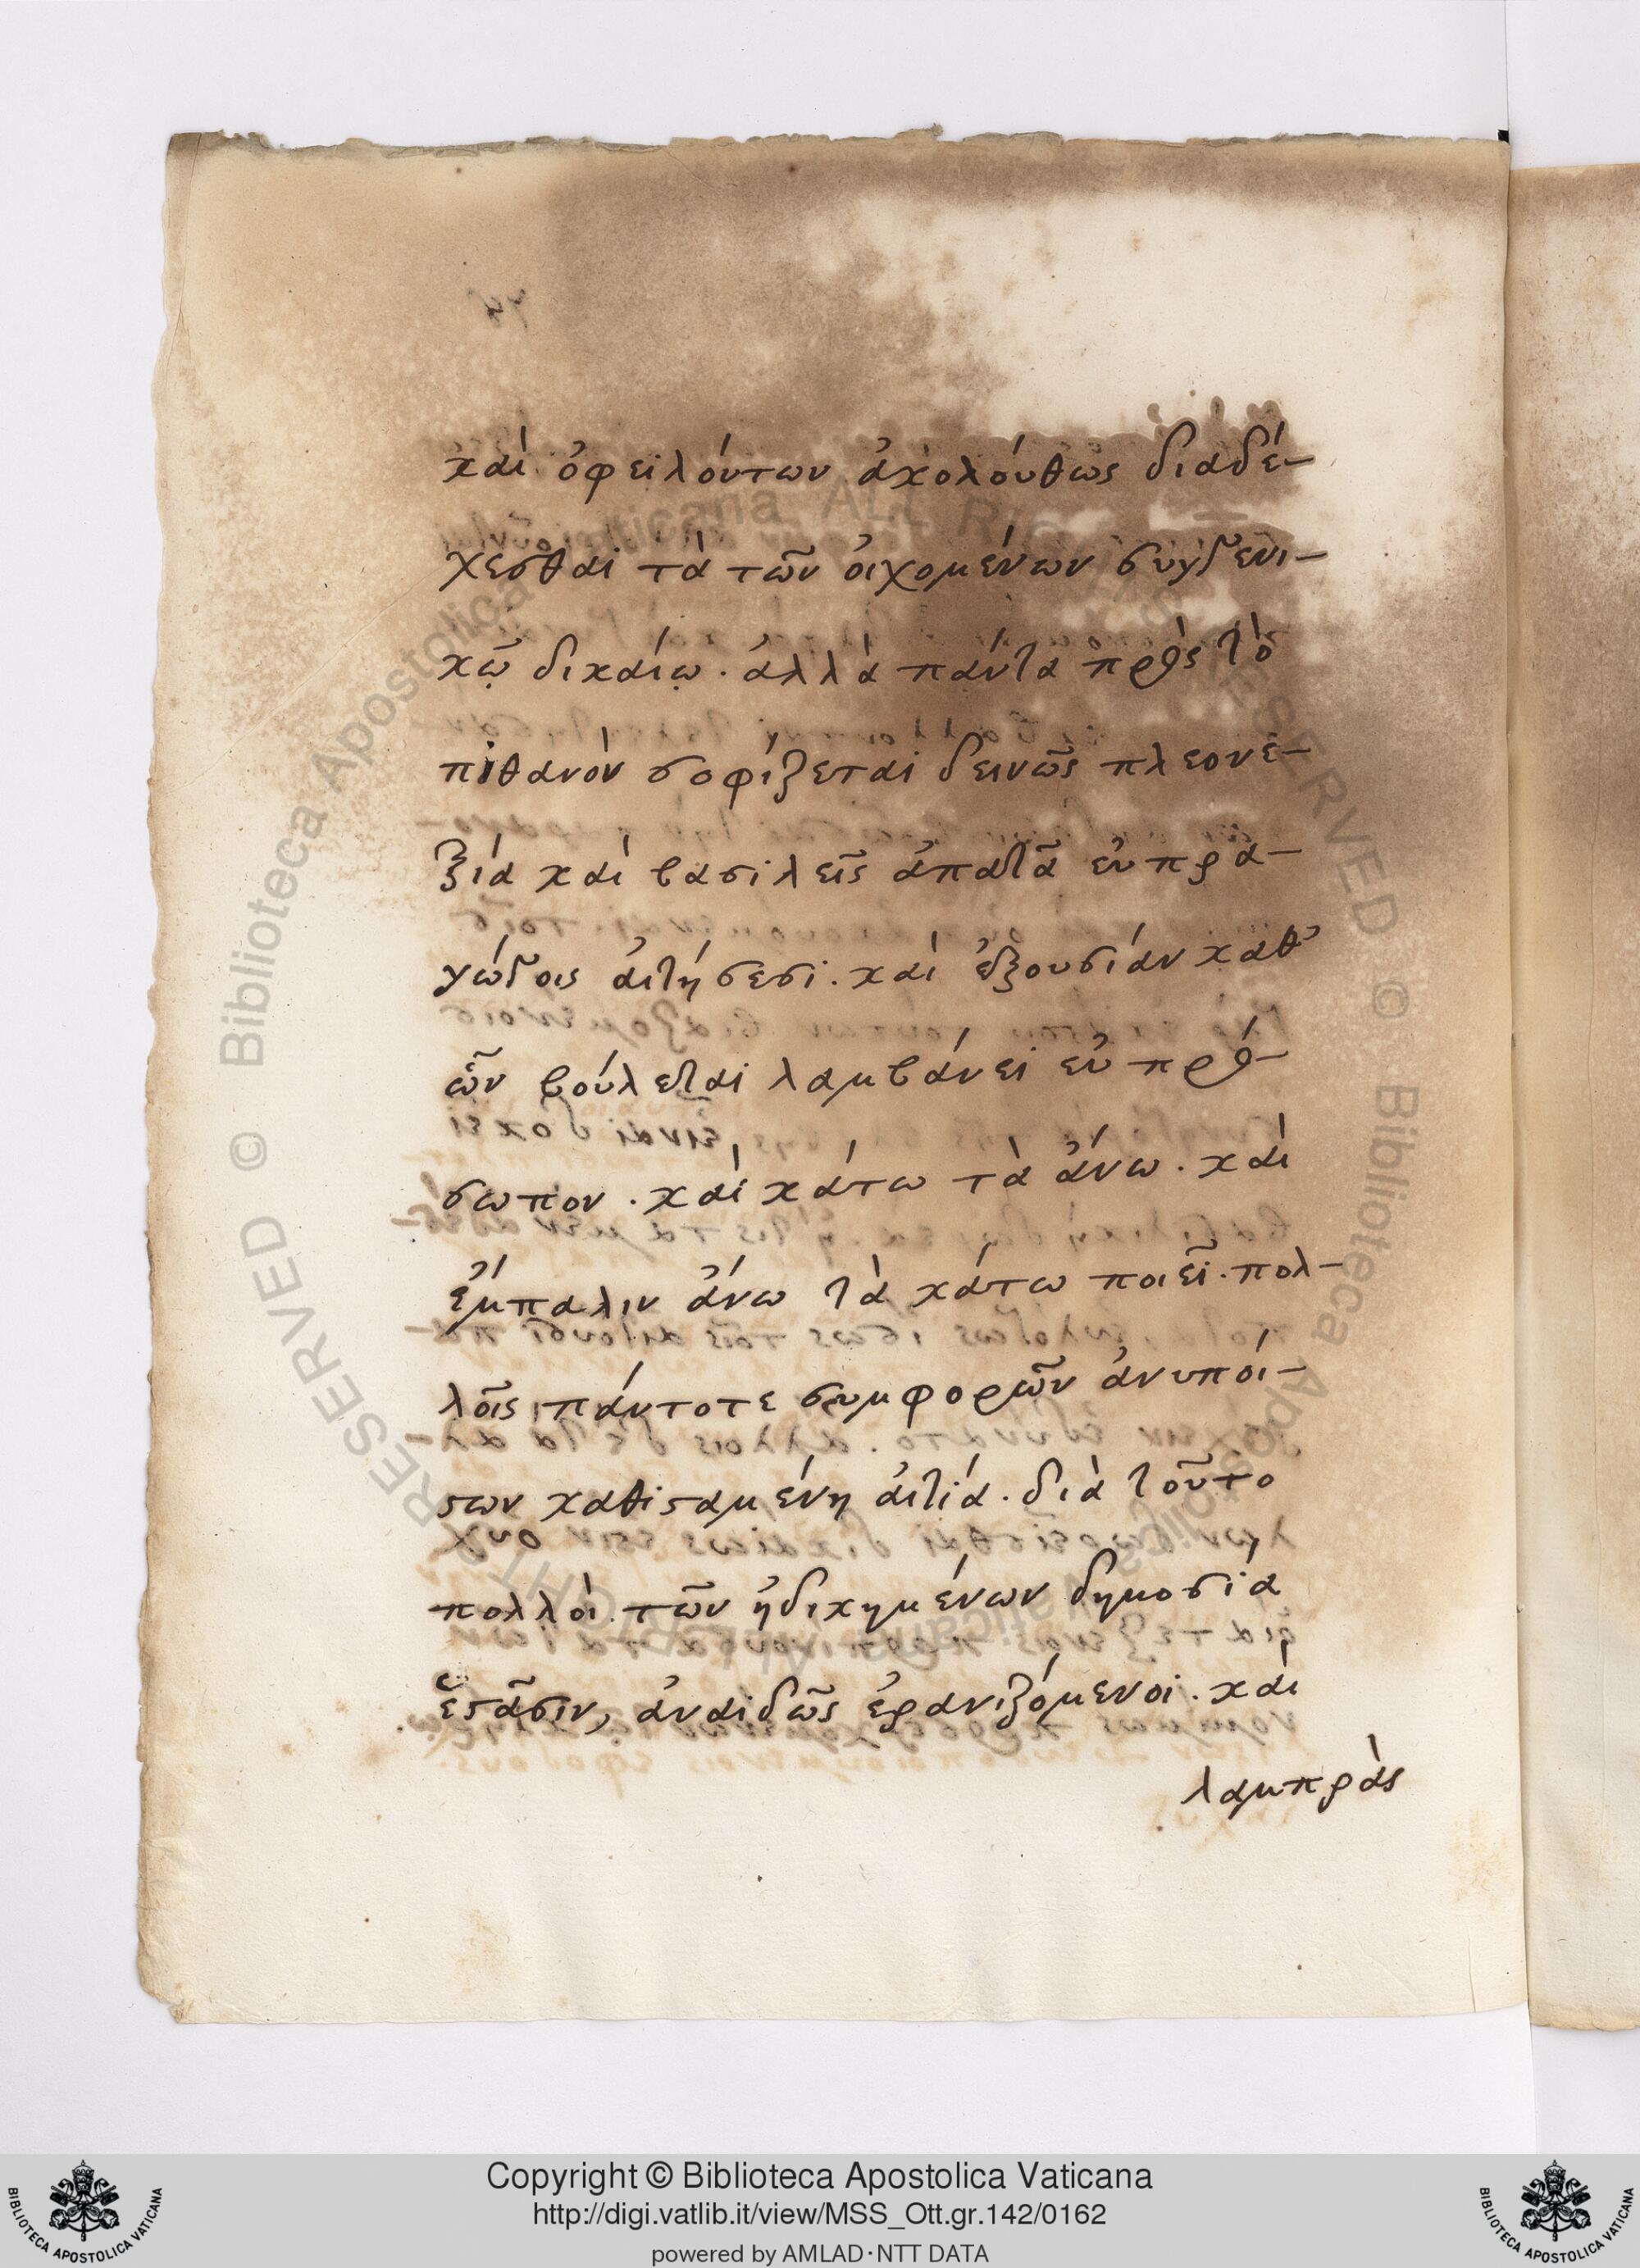 καὶ ὀφειλόντων ἀκολούθως διαδέ-
χεσθαι τὰ τῶν οἰχομένων συγγενι-
κῷ δικαίῳ. ἀλλὰ πάντα πρὸς τὸ
πιθανὸν σοφίζεται δεινῶς πλεονε-
ξία καὶ βασιλεῖς ἀπατᾶ εὐπρα-
γώγοις αἰτήσεσι. καὶ ἐξουσίαν καθ'
ὧν βούλεται λαμβάνει εὐπρό-
σωπον. καὶ κάτω τὰ ἄνω. καὶ
ἔμπαλιν ἄνω τὰ κάτω ποιεῖ. πολ-
λοῖς πάντοτε συμφορῶν ἀνυποί-
στων καθισταμένη αἰτία. διὰ τοῦτο
πολλοὶ τῶν ἠδικημένων δημοσία
ἑστᾶσιν, ἀναιδῶς ἐρανιζόμενοι. καὶ
λαμπρὰς
© Biblioteca Apostolica Vaticana ALL RIGHTS RESERVED © Biblioteca Apostolica Vaticana ALL RIGHTS RESERVED
Copyright © Biblioteca Apostolica Vaticana
http://digi.vatlib.it/view/MSS_Ott.gr.142/0162
powered by AMLAD·NTT DATA
BIBLIOTECA APOSTOLICA VATICANA
BIBLIOTECA APOSTOLICA VATICANA